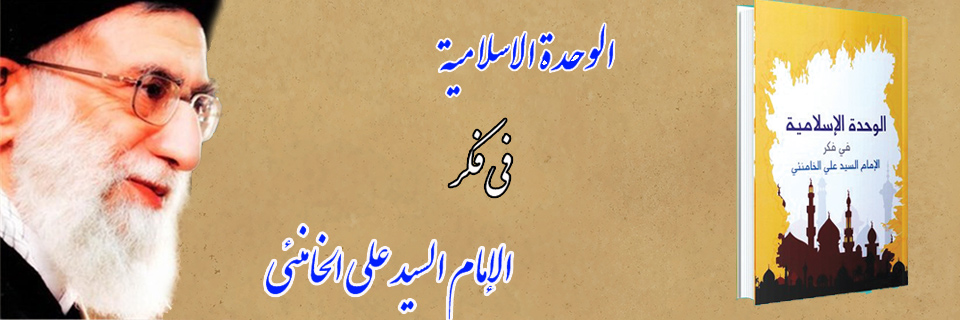 الوحدة الاسلامية
فی فکر
الإمام السيد علی الخامنئی
الوحدة الإسلامية
في فكر
الإمام السيد علي الخامنئي